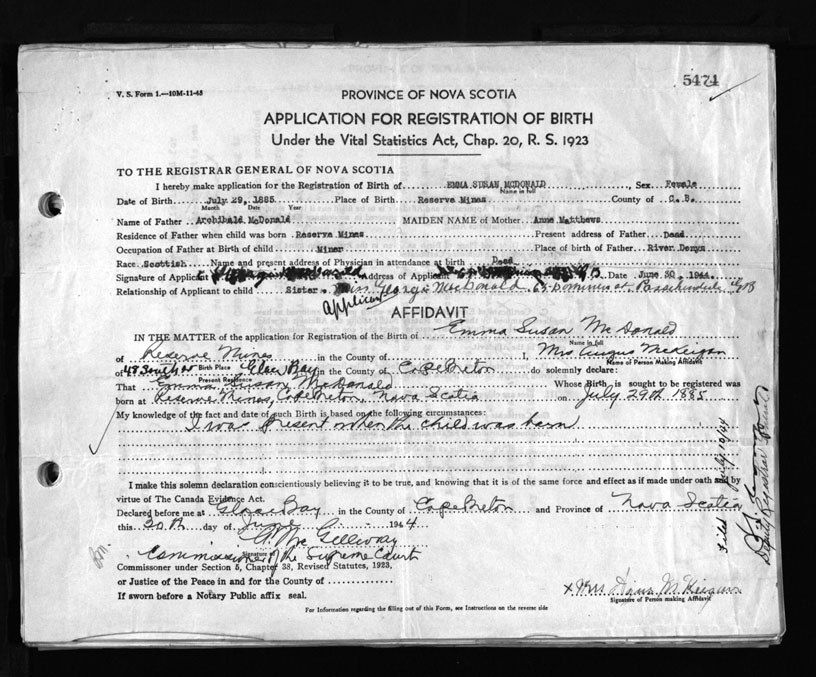 5474
V. S. Form 1.—10M-11-43
PROVINCE OF NOVA SCOTIA
APPLICATION FOR REGISTRATION OF BIRTH
Under the Vital Statistics Act, Chap. 20, R. S. 1923
TO THE REGISTRAR GENERAL OF NOVA SCOTIA
I hereby make application for the Registration of Birth of EMMA SUSAN MCDONALD, Sex Female
Name in full
Date of Birth July 29, 1885 Place of Birth Reserve Mines County of C. B.
Month Date Year
Name of Father Archibald McDonald MAIDEN NAME of Mother Anne Matthews
Residence of Father when child was born Reserve Mines Present address of Father Dead
Occupation of Father at Birth of child Miner Place of birth of Father River Denys
Race Scottish Name and present address of Physician in attendance at birth Dead
Signature of Applicant Address of Applicant Date June 30, 1944
Relationship of Applicant to child Sister Miss Georgie MacDonald
Applicant
AFFIDAVIT
IN THE MATTER of the application for Registration of the Birth of Emma Susan McDonald
Name in full
of Reserve Mines in the County of I, Mrs Angus McKeigan
Birth Place Name of Person Making Affidavit
of 48 Glace Bay in the County of Cape Breton do solemnly declare:
Present Residence
That Emma Susan MacDonald Whose Birth is sought to be registered was
born at Reserve Mines, Cape Breton, Nova Scotia on July 29th 1885
My knowledge of the fact and date of such Birth is based on the following circumstances:
I was present when the child was born
I make this solemn declaration conscientiously believing it to be true, and knowing that it is of the same force and effect as if made under oath and by
virtue of The Canada Evidence Act.
Declared before me at Glace Bay in the County of Cape Breton and Province of Nova Scotia
this 30th day of June 1944
Signature of
Commissioner of the Supreme Court
Commissioner under Section 5, Chapter 38, Revised Statutes, 1923,
or Justice of the Peace in and for the County of
If sworn before a Notary Public affix seal.
x Mrs Angus McKeigan
Signature of Person making Affidavit
For Information regarding the filling out of this Form, see Instructions on the reverse side
Filed July 10/44
Deputy Registrar General